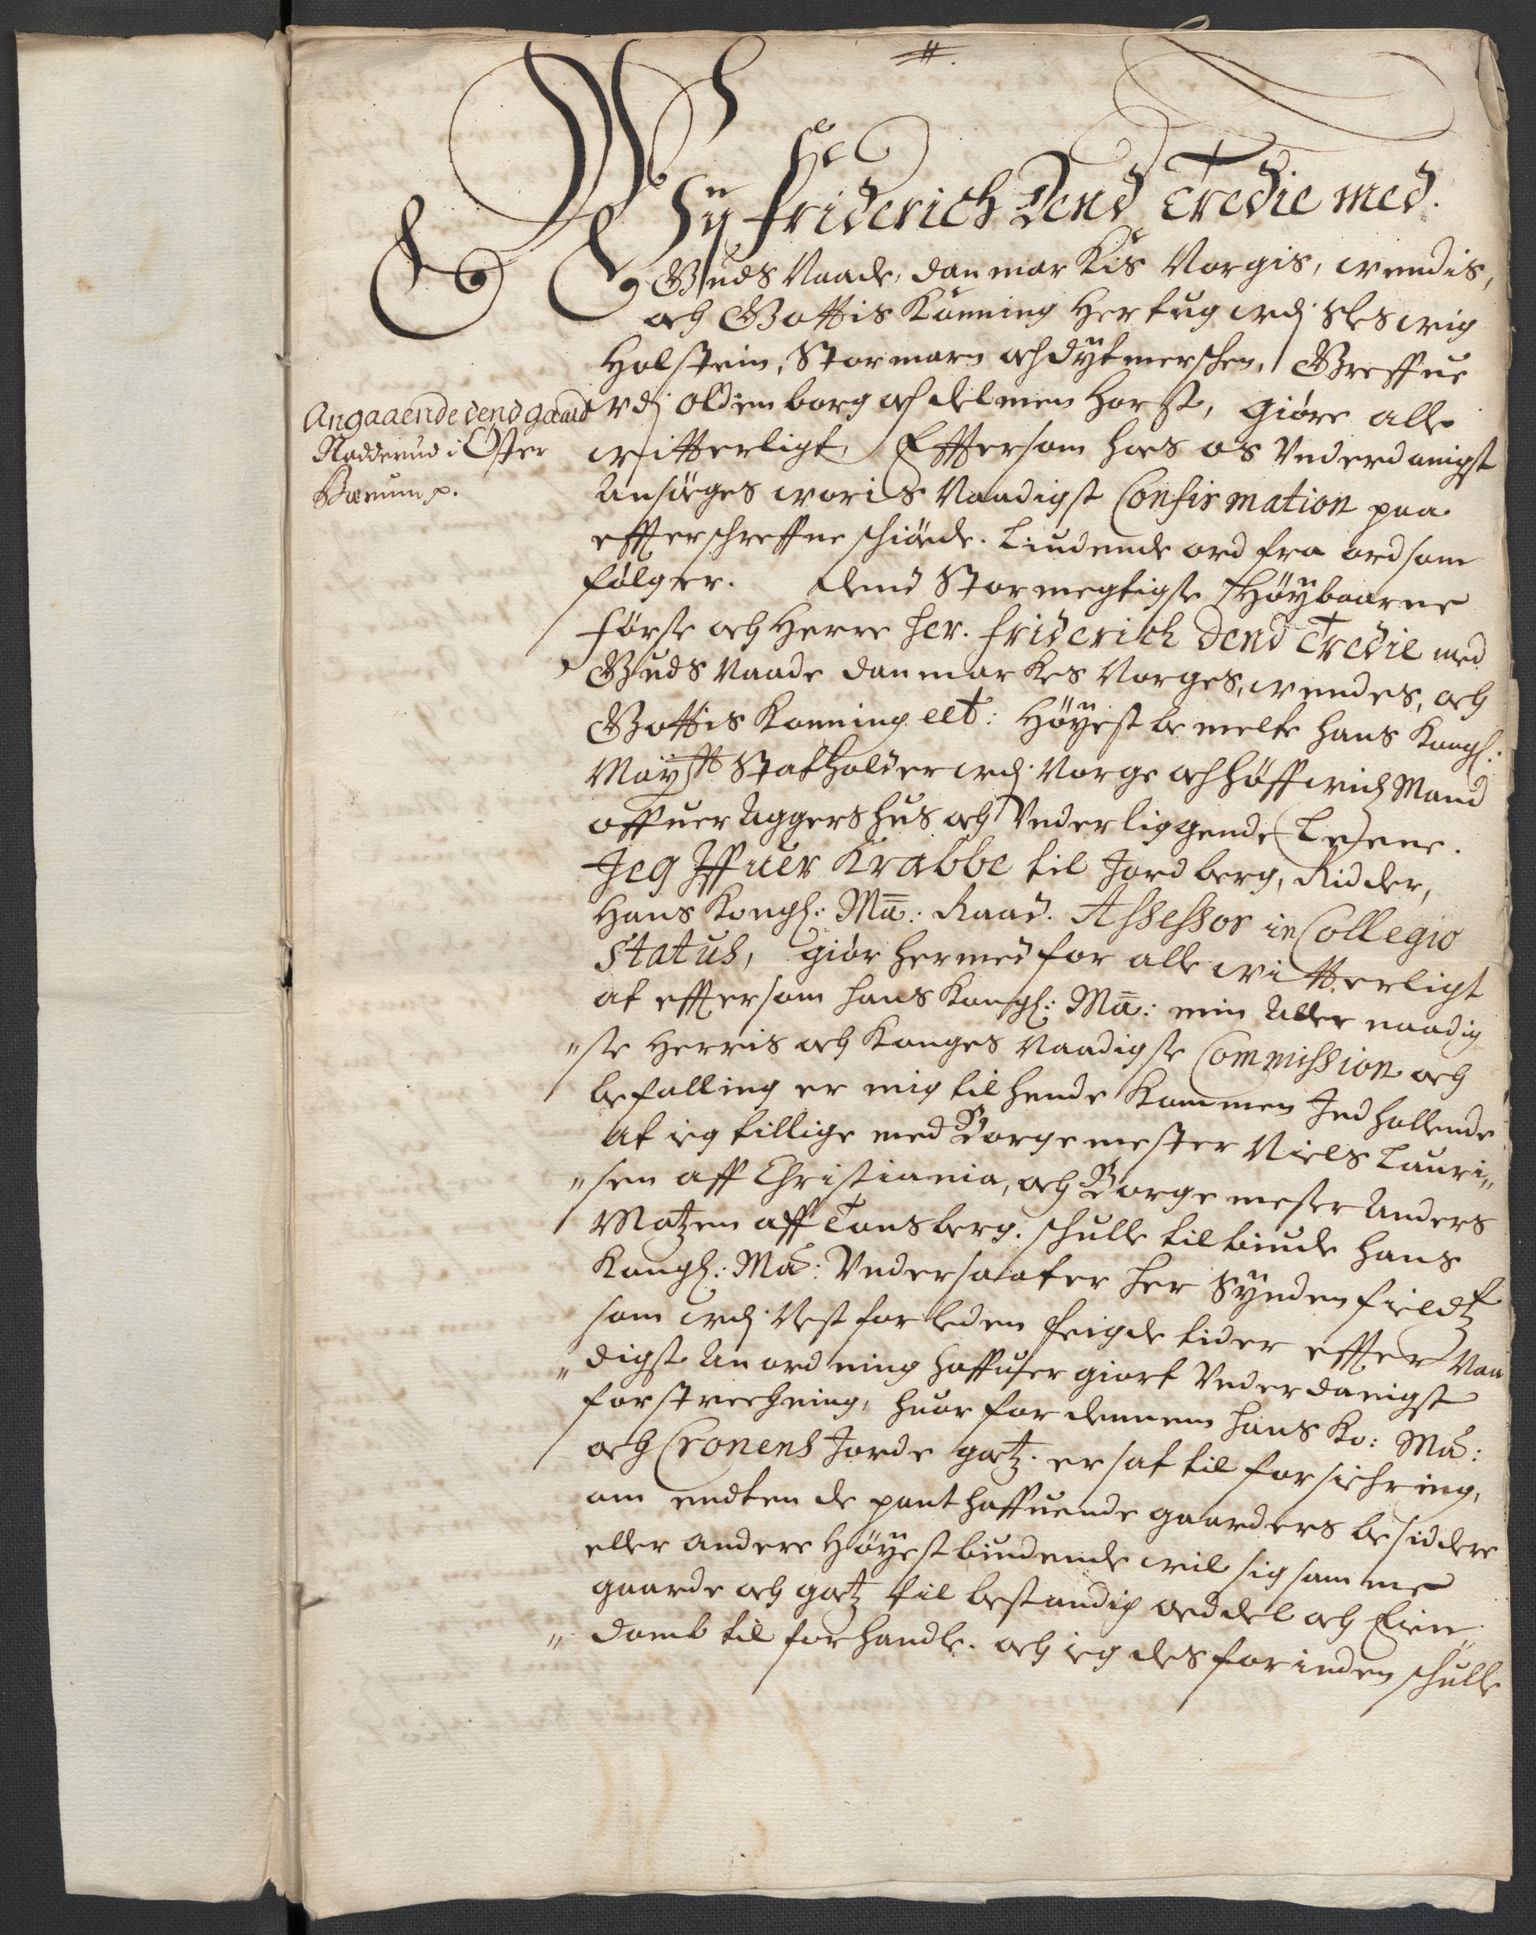 Wy Friderich Dend Tredie med
Guds Naade, danmarkis Norgis, wendis,
och Gottis Konning Hertug udj Sleswig
Holstein, Stormarn och dytmerschen, Greffue
udj Oldenborg och delmenhorst, Giøre alle
witterligt, Efftersom hoes os Vnderdanigst
Ansøges woris Naadigst Confirmation paa
effterschreffne schiøde. Liudende ord fra ord som
følger. Dend Stormegtigste Høybaarne
Første och Herre Her. Friderich Dend Tredie med
Guds Naade Danmarkes Norges, wendes, och
Gottis Konning ect: Høyestbemelte hans Kongl:
Mayts Statholder udj Norge och høffwidzmand
offuer Aggershus och Underliggende Lehne.
Jeg Iffuer Krabbe til Jordberg, Ridder,
Hans Kongl: Ma: Raad. Assessor in Collegio
Status, giør hermed for alle witterligt
at efftersom hans Kongl: Ma: min Aller naadig
"ste Herris och Konges Naadigste Commission och
befalling er mig til hende kommen Indhollende
at ieg tillige med Borgemester Niels Lauri"
"sen aff Christiania, och Borgemester Anders
Matzen aff Tonsberg. schulle tilbiude hans
Kongl: Ma: Undersaater her Syndenfieldz
som udj Nestforleden feigde tider effter Naa
"digst Anordning haffuer giort Vnderdanigst
forstrechning, huor for dennem hans Ko: Ma:
och Cronens Jorde gotz er sat til forsichring,
om endten de panthaffuende gaarders besiddere
eller andere Høyestbiudende wil sig samme
gaarde och gotz til bestandig oeddel och Eien"
"domb til forhandle. och ieg des forinden schulle
Angaaende dend gaard
Nadderud i Øster
Bærum p.